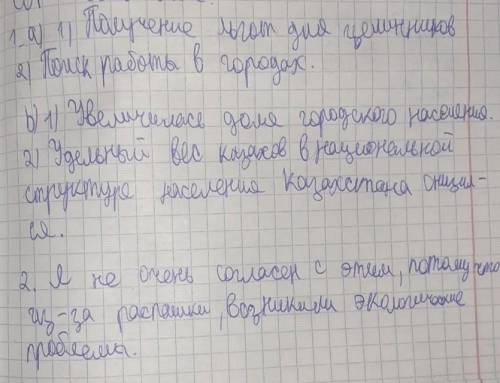 1. a) 1) Получение льгот для целинников
2) Поиск работы в городах.
b) 1) Увеличилась доля городского населения.
2) Удельный вес казахов в национальной
структуре населения Казахстана снизил-
ся.
2. Я не очень согласен с этим, потому что
из-за распашки, возникили экологические
проблемы.